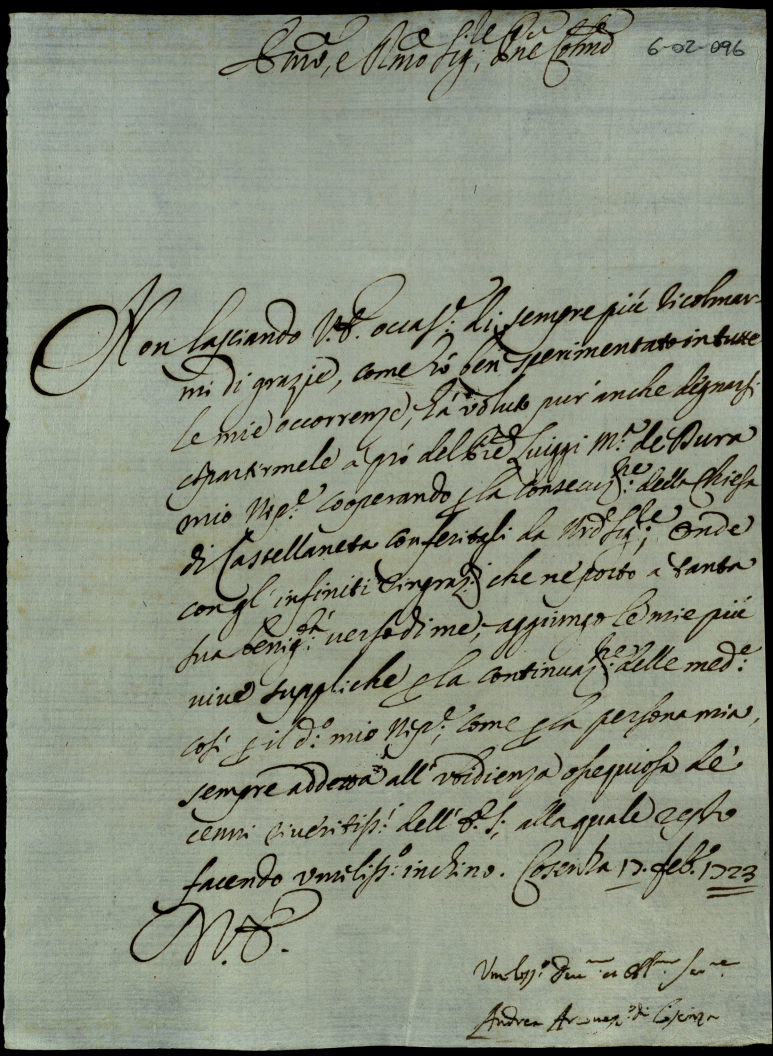 Em̃o, e Rm̃o Sig.r, P̃ne Colm̃o
6-02-096
Non lasciando V. E. occas.e di sempre più ricolmar-
mi di grazie, come hò ben sperimentato in tutte
le mie occorrenze, hà voluto pur'anche degnarsi
ripartirmele a prò del Luiggi M.a de Dura
mio Nip.e cooperando p la consecuz.ne della Chiesa
di Castellaneta conferitagli da N̄ro Sig.re; Onde
con gl'infiniti ringraz.j che ne porto a tanta
sua benig.tà verso di me, aggiungo le mie più
vive suppliche p la continuaz.ne delle med.e
così p il d.o mio Nip.e, come p la persona mia,
sempre addetta all'vbidienza ossequiosa de'
cenni riveritiss.i dell'E. S., alla quale resto
facendo vmiliss.o inchino. Cosenza 17. Feb.o 1723
V. E.
Vmiliss.o Seru.re
Andrea Arcivesc.o di Cosenza